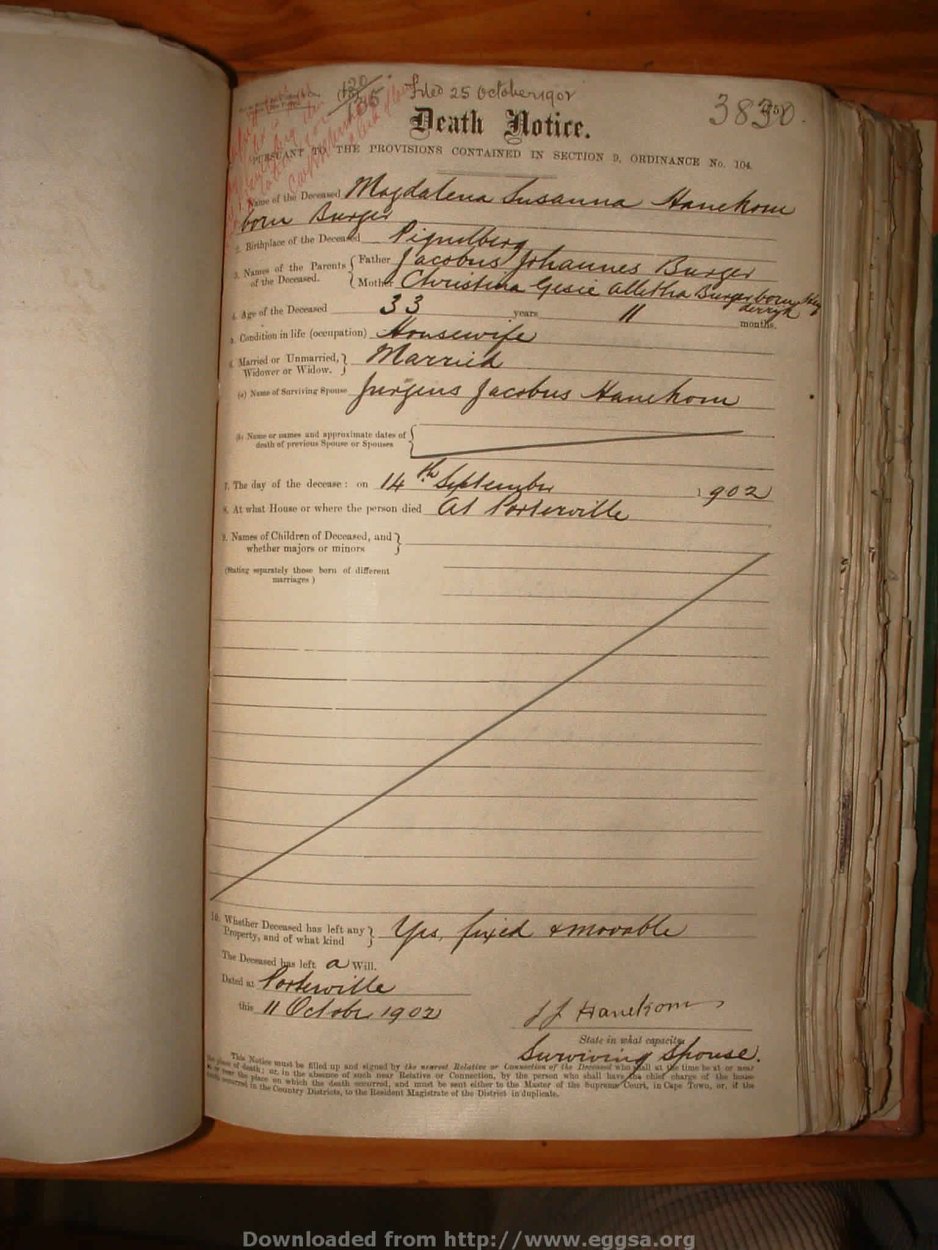 Filed 25 October 1902
Death Notice.
PURSUANT TO THE PROVISIONS CONTAINED IN SECTION 9, ORDINANCE No. 104.
1. Name of the Deceased Magdalena Susanna Hanekom
born Burger
2. Birthplace of the Deceased Piquetberg
3. Names of the Parents of the Deceased.
Father Jacobus Johannes Burger
Mother Christina Gesie Alletha Burger born
4. Age of the Deceased 33 years 11 months.
5. Condition in life (occupation) Housewife
6. Married or Unmarried, Widower or Widow. Married
(a) Name of Surviving Spouse Jurgens Jacobus Hanekom
(b) Name or names and approximate dates of
death of previous Spouse or Spouses
7. The day of the decease: on 14th September 1902
8. At what House or where the person died At Porterville
9. Names of Children of Deceased, and
whether majors or minors
(Stating separately those born of different
marriages)
10. Whether Deceased has left any
Property, and of what kind
Yes, fixed & movable
The Deceased has left a Will.
Dated at Porterville
this 11 Octobr 1902
JJ Hanekom
State in what capacity
Surviving Spouse.
This Notice must be filled up and signed by the nearest Relative or Connection of the Deceased who shall at the time be at or near
the place of death; or, in the absence of such near Relative or Connection, by the person who shall have the chief charge of the house
in or near the place on which the death occurred, and must be sent either to the Master of the Supreme Court, in Cape Town, or, if the
death occurred in the Country Districts, to the Resident Magistrate of the District in duplicate.
Downloaded from http://www.eggsa.org